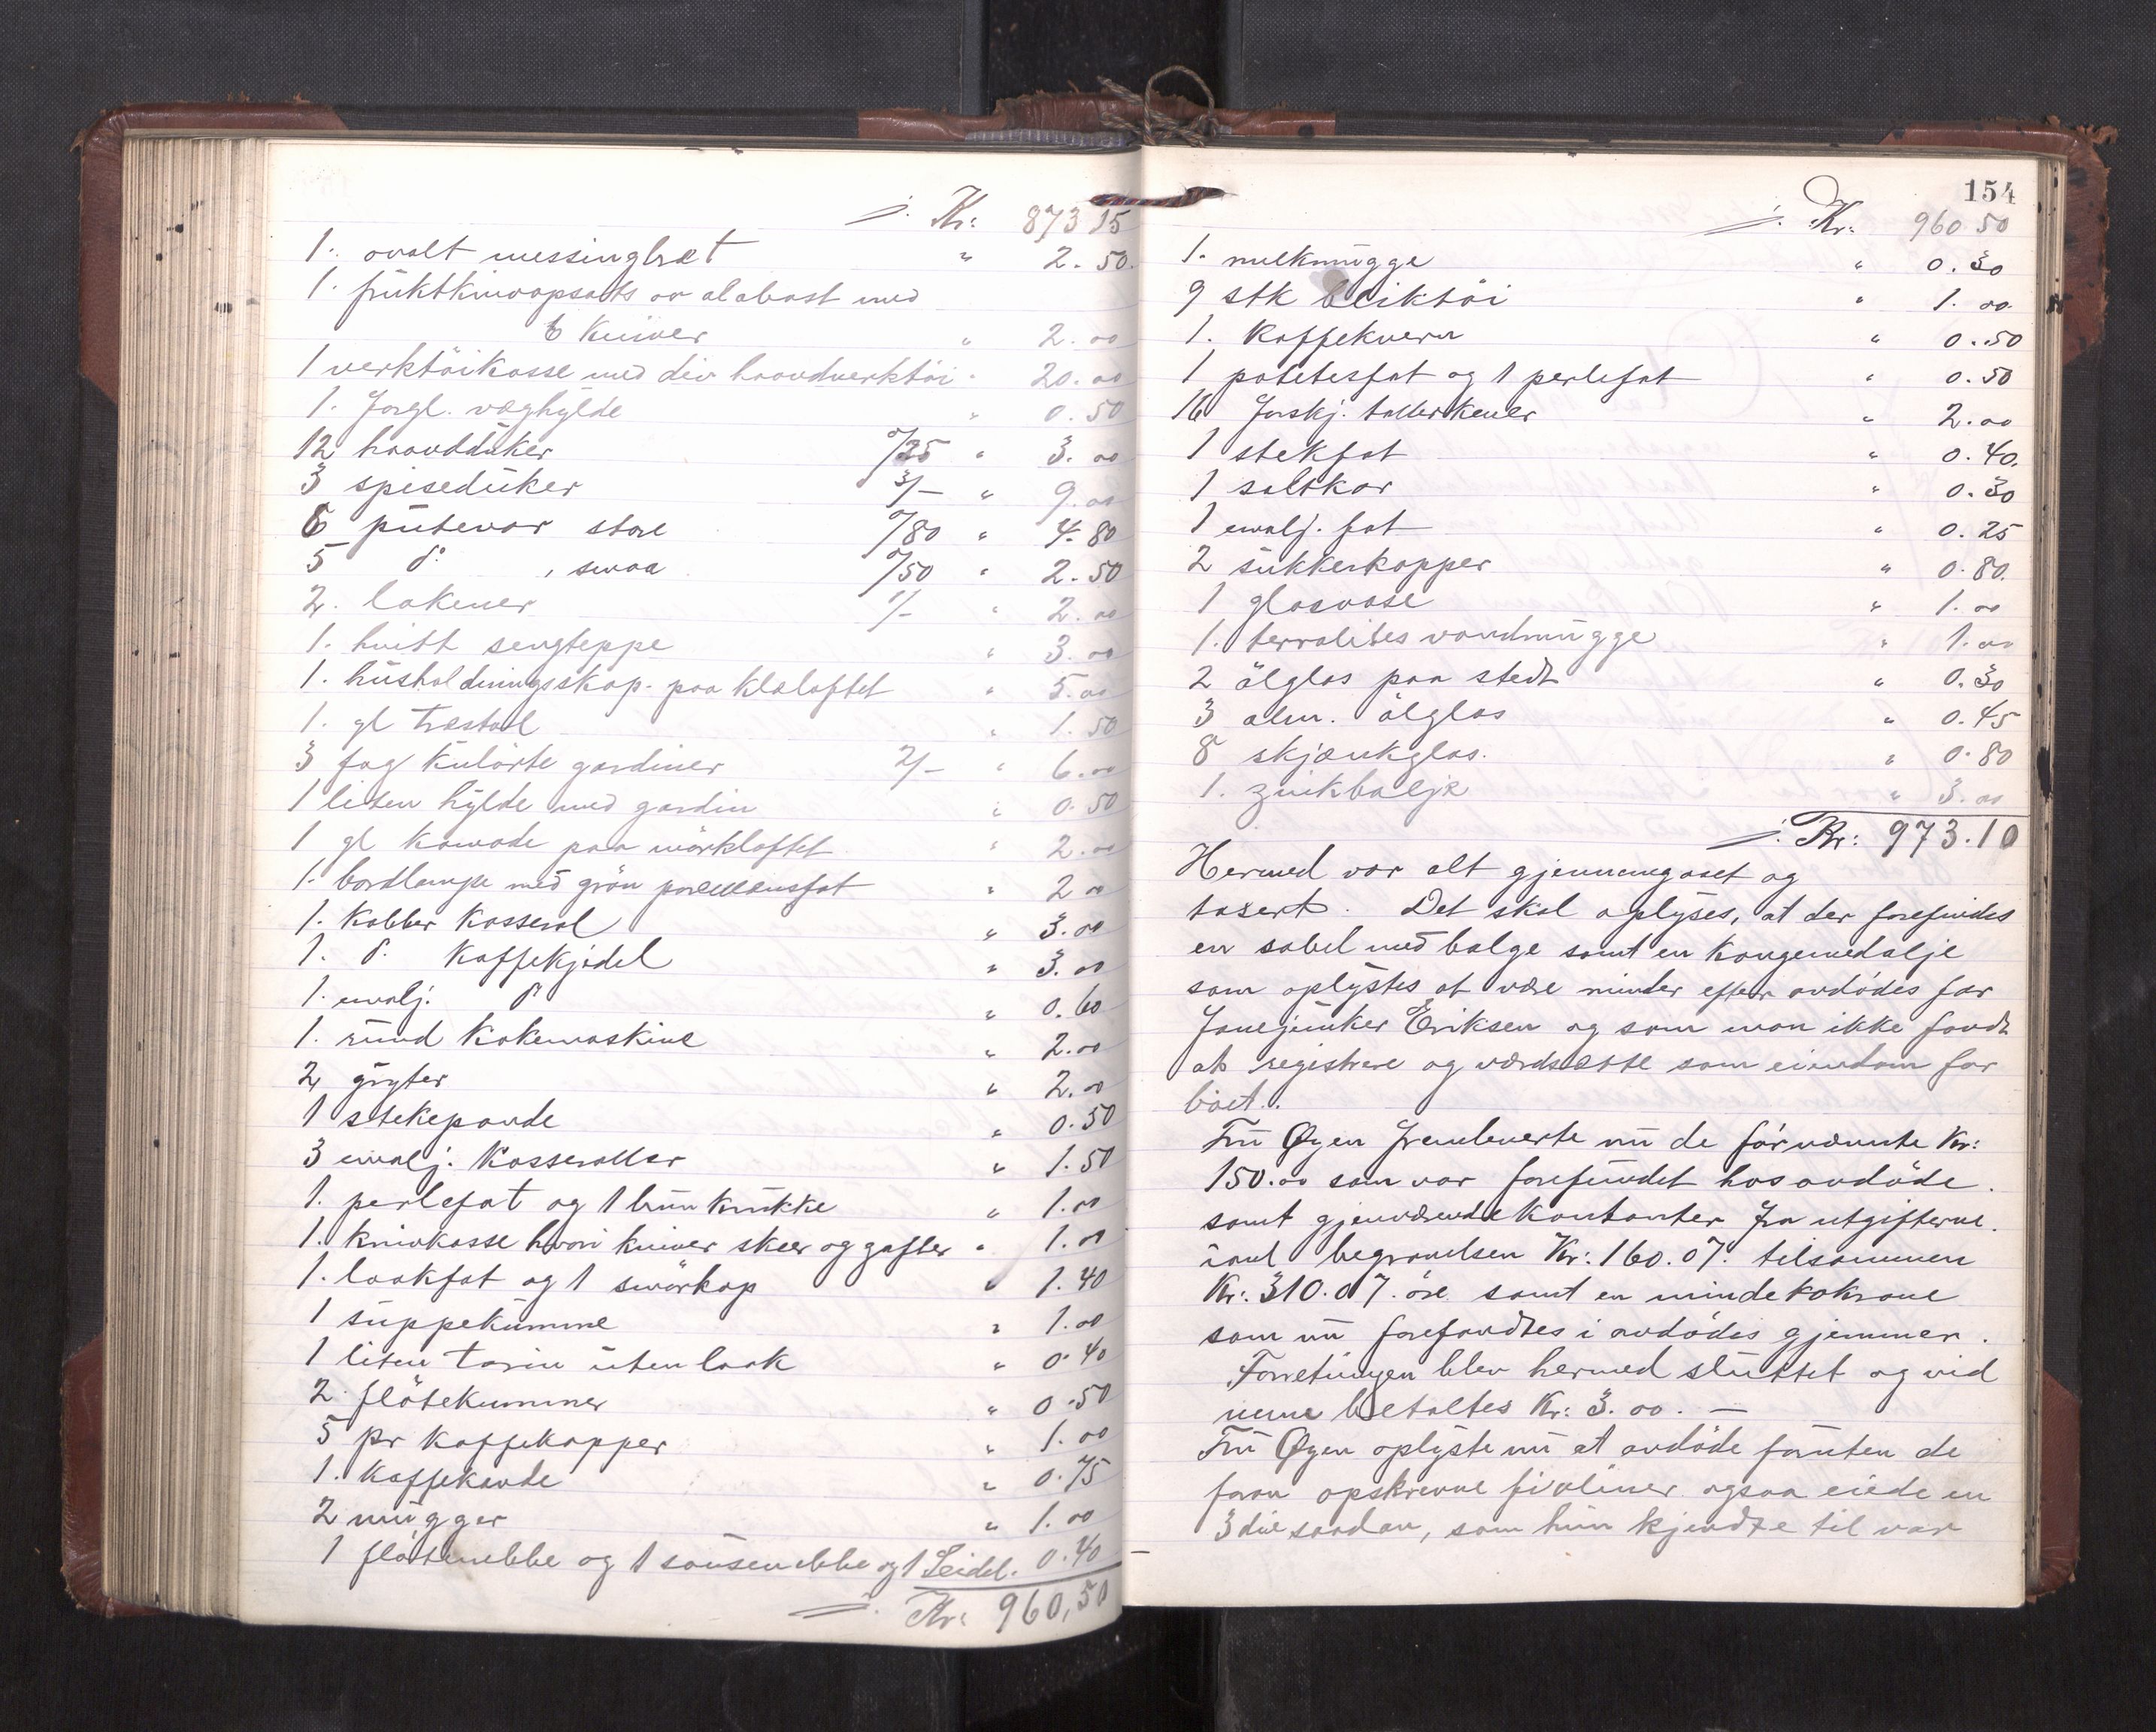 Kr: 873 15
1. ovalt messingbræt " 2.50.
1. früktknivopsats av alabast med
6 kniver " 2.00
1 verktöikasse med div haandverktöi " 20.00
1. forgl. væghylde " 0.50
12 haanddüker 0/25 " 3.00
3 spisedüker 3/- " 9.00
6 pütevar store 0/80 " 4.80
5 do , smaa 0/50 " 2.50
2. lakener 1/- " 2.00
1. hvitt sengteppe " 3.00
1. hüsholdningsskap paa klæloftet " 5.00
1. gl træstol " 1.50
3 fag kulörte gardiner 2/- " 6.00
1 liten hylde med gardin " 0.50
1 gl komode paa mörkloftet " 2.00
1. bordlampe med grön porcellænsfot " 2.00
1. Kobber kasserol " 3.00
1. do Kaffekjedel " 3.00
1. emalj. do " 0.60
1. ründ kokemaskine " 2.00
2 gryter " 2.00
1 stekepande " 0.50
3 emalj. Kasseroller " 1.50
1. perlefat og 1 brün krükke " 1.00
1. knivkasse hvori kniver skeer og gafler " 1.00
1. lookfat og 1 smörkop " 1.40
1 süppekümme " 1.00
1 liten terrin üten look " 0.40
2 flötekummer " 0.50
5 pr kaffekopper " 1.00
1. Kaffekande " 0.75
2 mügger " 1.00
1 flötenebbe og 1 sausenebbe og 1 Seidel. 0.40
Kr: 960,50
154
Kr: 960 50
1. melkmügge " 0.30
9 stk bliktöi " 1.00
1. Kaffekvern " 0.50
1 potetesfat og 1 perlefat " 0.50
16 forskj. tallerkener " 2.00
1 stekfat " 0.40.
1 saltkar " 0.30
1 emalj. fat " 0.25
2 sükkerkopper " 0.80.
1 glasvase " 1.00
1. terralites vandmügge " 1.00
2 ölglas paa stedt " 0.30
3 alm. ölglas " 0.45
8 skjænkglas. " 0.80
1. zinkbalje " 3.00
Kr: 973.10
Hermed var alt gjennemgaaet og
taxert. Det skal oplyses, at der forefindes
en sabel med balge samt en Kongemedalje
som oplystes at være minder efter avdödes far
Fanejunker Eriksen og som man ikke fandt
at registrere og værdsætte som eiendom for
boet.
Frü Øyen fremleverte nü de förnævnte Kr:
150.00 som var forefundet hos avdöde.
samt gjenværende kontanter fra utgifterne.
ved begravelsen Kr: 160.07. tilsammen
Kr: 310.07. öre samt en mindetokrone
som nü forefandtes i avdödes gjemmer.
Forretningen blev hermed slüttet og vid
nerne betaltes Kr: 3.00. —
Frü Øyen oplyste nü at avdöde foruten de
foran opskrevne fioliner ogsaa eiede en
3die saadan, som hün kjendte til var